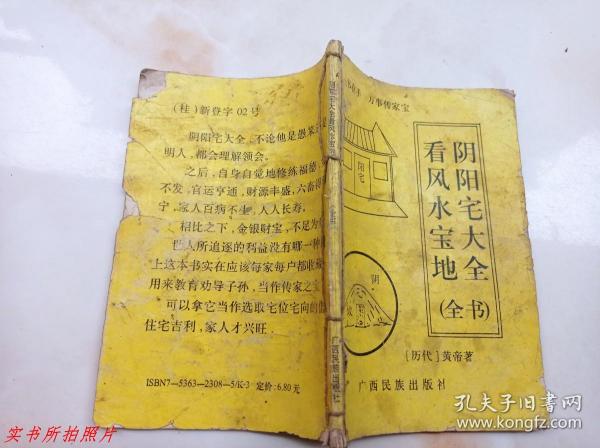 (桂)新登字02号
阴阳宅大全,不论他是愚笨
明人,都会理解领会。
之后,自身自觉地修练福德
不发,官运亨通,财源丰盛,六畜
宁,家人百病不生,人人长寿。
相比之下,金银财宝,不足为
世人所追逐的利益没有哪一种
上这本书实在应该每家每户都收
用来教育劝导子孙,当作传家之宝
可以拿它当作选取宅位宅向的
住宅吉利,家人才兴旺。
ISBN7-5363-2308-5/K·3 定价:6.80元
阴阳宅大全看风水宝地
广西民族出版社
万事传家宝
阴阳宅大全
看风水宝地
(全书)
阳宅
阴
[历代]黄帝著
广西民族出版社
实书所拍照片
孔夫子旧书网
www.kongfz.com